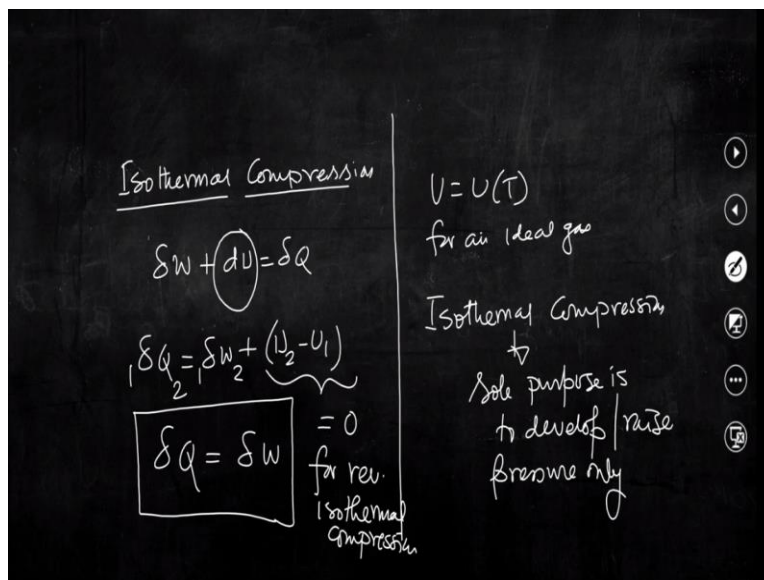 Isothermal Compression
δW + dU = δQ
₁δQ₂ = ₁δW₂ + (U₂ - U₁)
= 0
for rev.
isothermal
compression
δQ = δW
U = U(T)
for an ideal gas
Isothermal Compression
↓
Sole purpose is
to develop / raise
pressure only